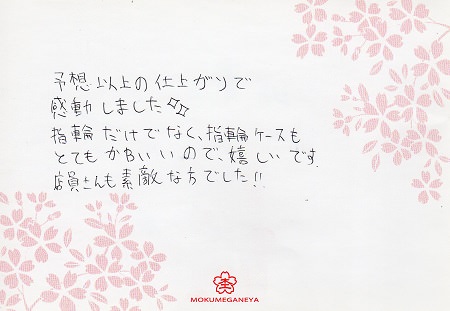 予想以上の仕上がりで
感動しました✨
指輪だけでなく、指輪ケースも
とてもかわいいので、嬉しいです。
店員さんも素敵な方でした!!
MOKUMEGANEYA